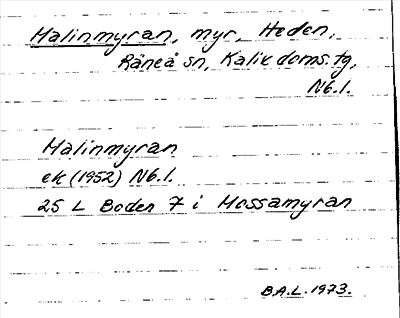 Malinmyran, myr, Heden,
Råneå sn, Kalix doms. tg,
Nb. l.
Malinmyran
ek (1952) Nb. l.
25 L Boden 7 i Mossamyran
B.A.L. 1973.